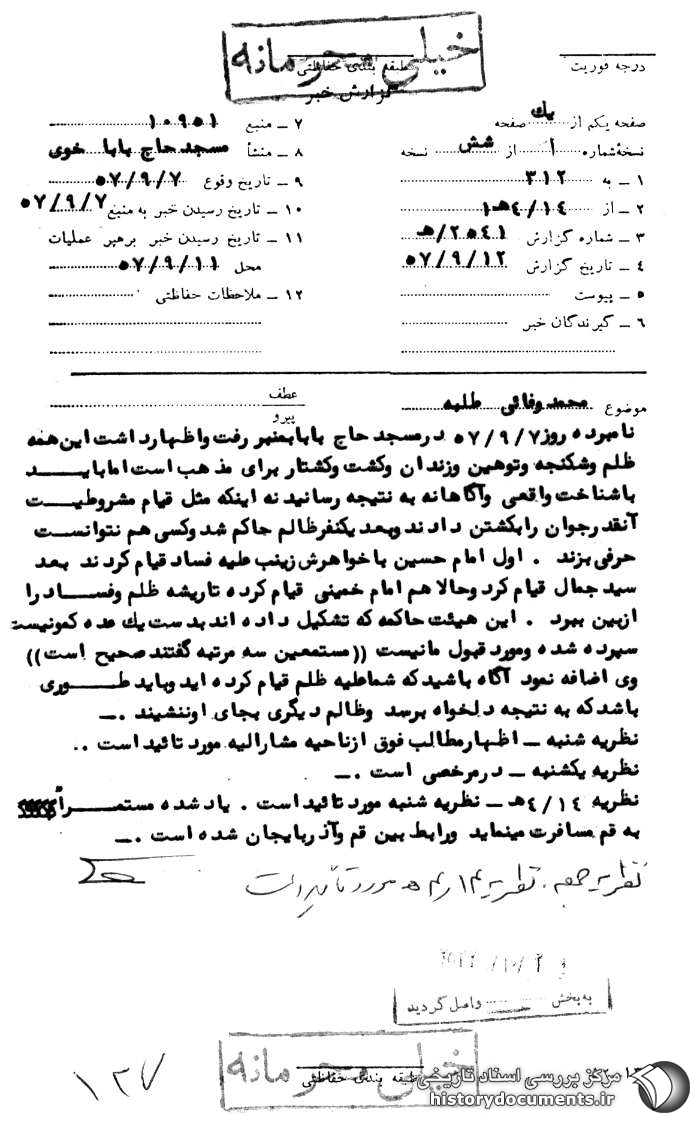 خیلی محرمانه
درجه فوریت
طبقه بندی حفاظتی
گزارش خبر
صفحه یکم از یك صفحه
نسخهٔ شماره ۱ از شش نسخه
۱ ـ به ۳۱۲
۲ ـ از ۴/۱۴هـ۱
۳ ـ شماره گزارش ۲۵۴۱/هـ
۴ ـ تاریخ گزارش ۵۷/۹/۱۲
۵ ـ پیوست
۶ ـ گیرندگان خبر
۷ ـ منبع ۱۰۹۵۱
۸ ـ منشأ مسجد حاج بابا خوی
۹ ـ تاریخ وقوع ۵۷/۹/۷
۱۰ ـ تاریخ رسیدن خبر به منبع ۵۷/۹/۷
۱۱ ـ تاریخ رسیدن خبر برهبر عملیات
محل ۵۷/۹/۱۱
۱۲ ـ ملاحظات حفاظتی
موضوع محمد وفائی طلبه
عطف
پیرو
نامبرده روز ۵۷/۹/۷ در مسجد حاج بابا بمنبر رفت و اظهار داشت این همه
ظلم وشکنجه وتوهین وزندان وکشت وکشتار برای مذهب است اما باید
باشناخت واقعی وآگاهانه به نتیجه رسانید نه اینکه مثل قیام مشروطیت
آنقدر جوان را بکشتن دادند وبعد یکنفر ظالم حاکم شد وکسی هم نتوانست
حرفی بزند . اول امام حسین با خواهرش زینب علیه فساد قیام کردند بعد
سید جمال قیام کرد وحالا هم امام خمینی قیام کرده تا ریشه ظلم وفساد را
ازبین ببرد . این هیئت حاکمه که تشکیل داده اند بدست یك عده کمونیست
سپرده شده ومورد قبول ما نیست ((مستمعین سه مرتبه گفتند صحیح است))
وی اضافه نمود آگاه باشید که شما علیه ظلم قیام کرده اید وباید طوری
باشد که به نتیجه دلخواه برسد وظالم دیگری بجای او ننشیند .ـ
نظریه شنبه ـ اظهار مطالب فوق از ناحیه مشارالیه مورد تائید است ..
نظریه یکشنبه ـ در مرخصی است .ـ
نظریه ۴/۱۴هـ ـ نظریه شنبه مورد تائید است . یاد شده مستمراً
به قم مسافرت مینماید ورابط بین قم وآذربایجان شده است .ـ
نظریه جمعه . نظریه ۴/۱۴هـ مورد تأیید است
به بخش واصل گردید
خیلی محرمانه
طبقه بندی حفاظتی
۱۲۷
مرکز بررسی اسناد تاریخی
historydocuments.ir